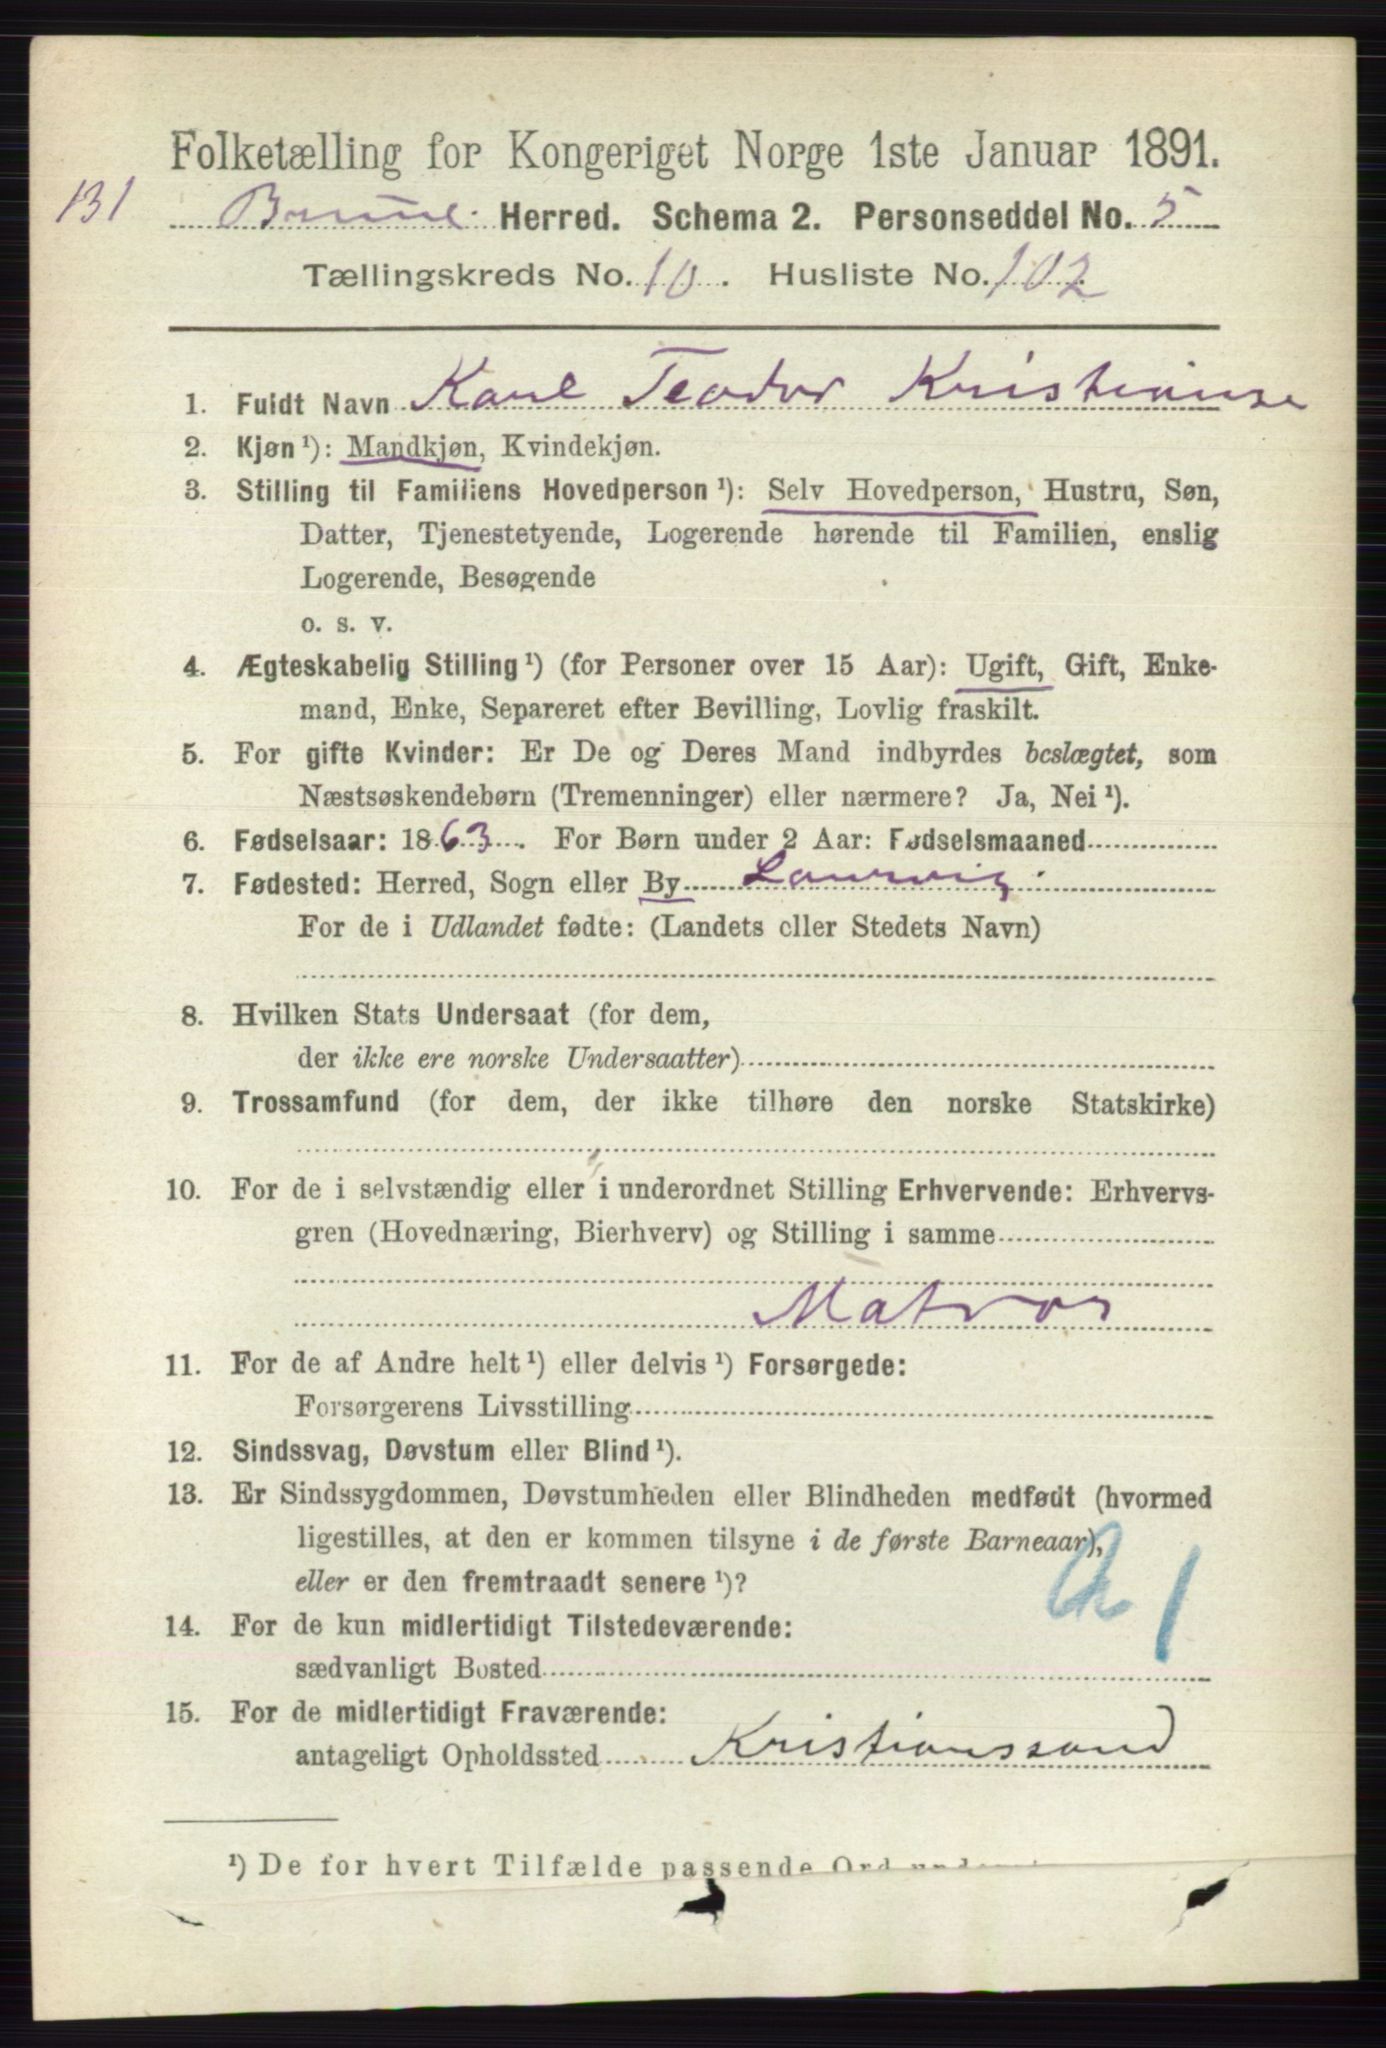 Folketælling for Kongeriget Norge 1ste Januar 1891.
131
Herred. Schema 2. Personseddel No. 5
Tællingskreds No. 10. Husliste No. 102
1. Fuldt Navn Karl Teodor Kristianse
2. Kjøn¹): Mandkjøn, Kvindekjøn.
3. Stilling til Familiens Hovedperson¹): Selv Hovedperson, Hustru, Søn,
Datter, Tjenestetyende, Logerende hørende til Familien, enslig
Logerende, Besøgende
o. s. v.
4. Ægteskabelig Stilling¹) (for Personer over 15 Aar): Ugift, Gift, Enke-
mand, Enke, Separeret efter Bevilling, Lovlig fraskilt.
5. For gifte Kvinder: Er De og Deres Mand indbyrdes beslægtet, som
Næstsøskendebørn (Tremenninger) eller nærmere? Ja, Nei¹).
6. Fødselsaar: 1863. For Børn under 2 Aar: Fødselsmaaned
7. Fødested: Herred, Sogn eller By Laurvig
For de i Udlandet fødte: (Landets eller Stedets Navn)
8. Hvilken Stats Undersaat (for dem,
der ikke ere norske Undersaatter)
9. Trossamfund (for dem, der ikke tilhøre den norske Statskirke)
10. For de i selvstændig eller i underordnet Stilling Erhvervende: Erhvervs-
gren (Hovednæring, Bierhverv) og Stilling i samme
Matros
11. For de af Andre helt¹) eller delvis¹) Forsørgede:
Forsørgerens Livsstilling
12. Sindssvag, Døvstum eller Blind¹).
13. Er Sindssygdommen, Døvstumheden eller Blindheden medfødt (hvormed
ligestilles, at den er kommen tilsyne i de første Barneaar),
eller er den fremtraadt senere¹)?
14. For de kun midlertidigt Tilstedeværende:
sædvanligt Bosted
15. For de midlertidigt Fraværende:
antageligt Opholdssted Kristianssand
¹) De for hvert Tilfælde passende Ord